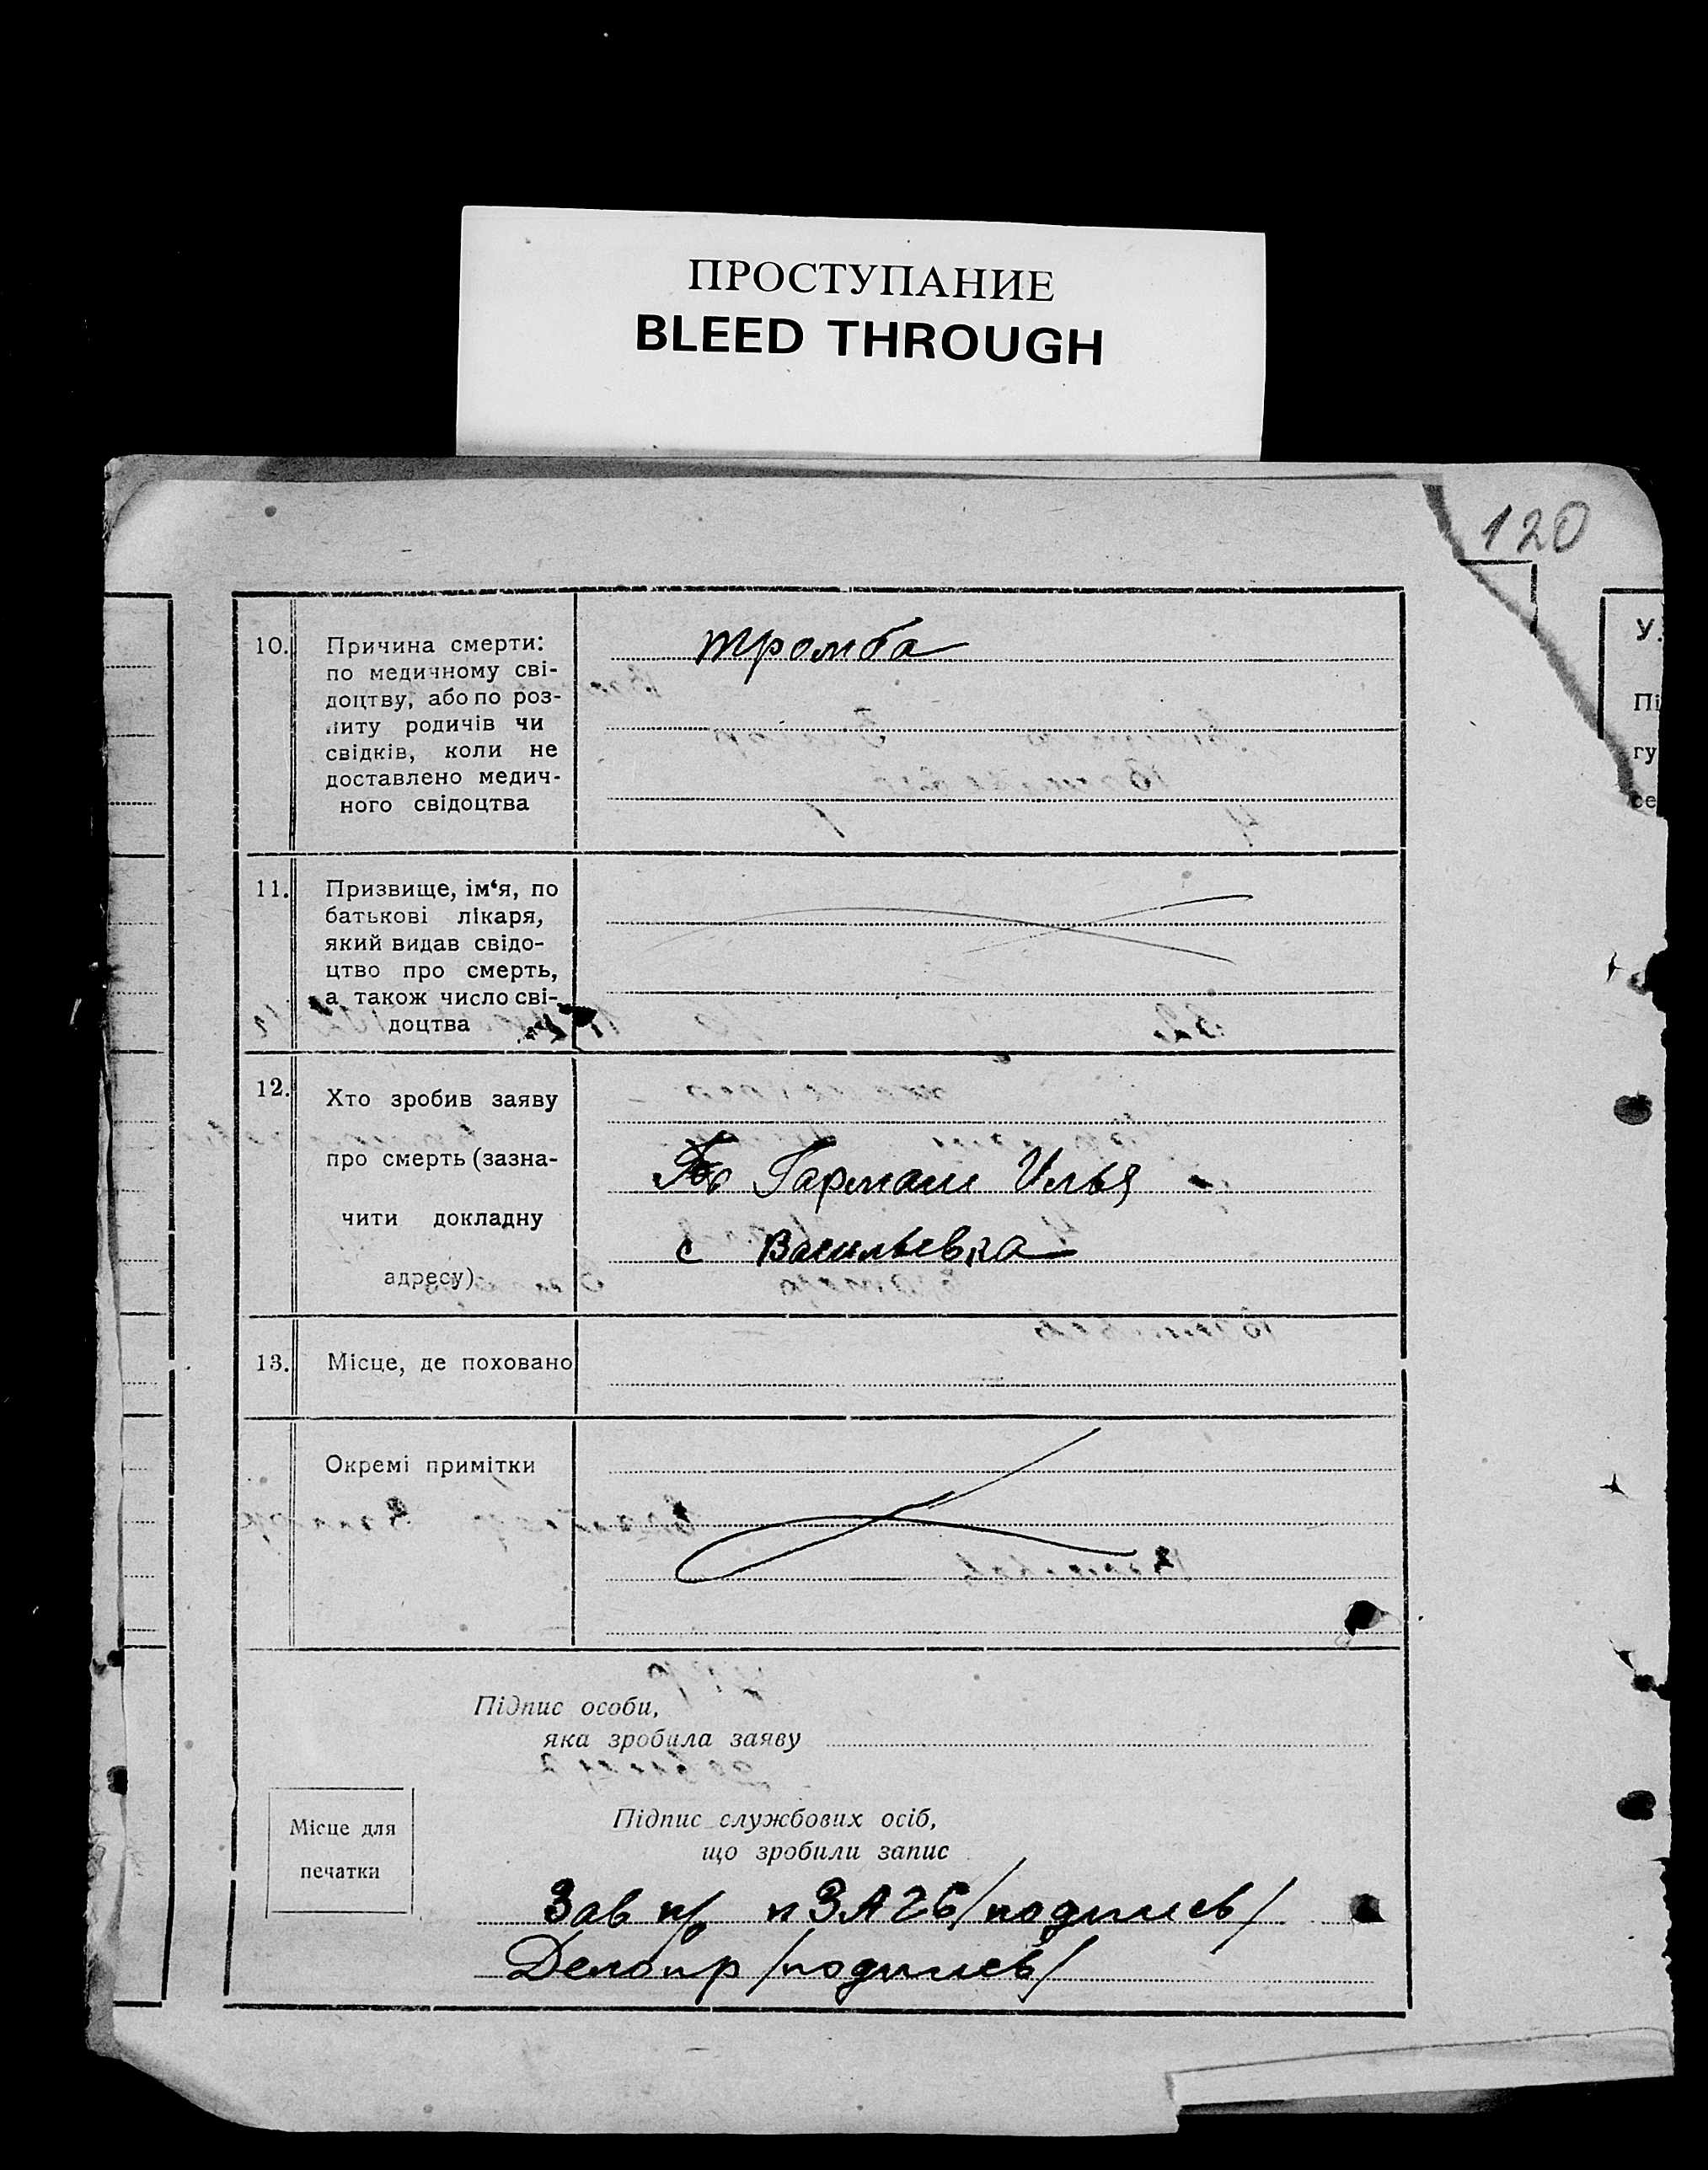 ПРОСТУПАНИЕ
BLEED THROUGH
120
10. Причина смерти: тромба
по медичному сві-
доцтву, або по роз-
питу родичів чи
свідків, коли не
доставлено медич-
ного свідоцтва
11. Призвище, ім‘я, по
батькові лікаря,
який видав свідо-
цтво про смерть,
а також число сві-
доцтва
12. Хто зробив заяву
про смерть (зазна- Гармаш Илья
чити докладну с Васильевка
адресу)
13. Місце, де поховано
Окремі примітки
Підпис особи,
яка зробила заяву
Місце для
печатки
Підпис службових осіб,
що зробили запис
Зав п/ /подпись/
Делопр /подпись/
У.
Пі
гу
се